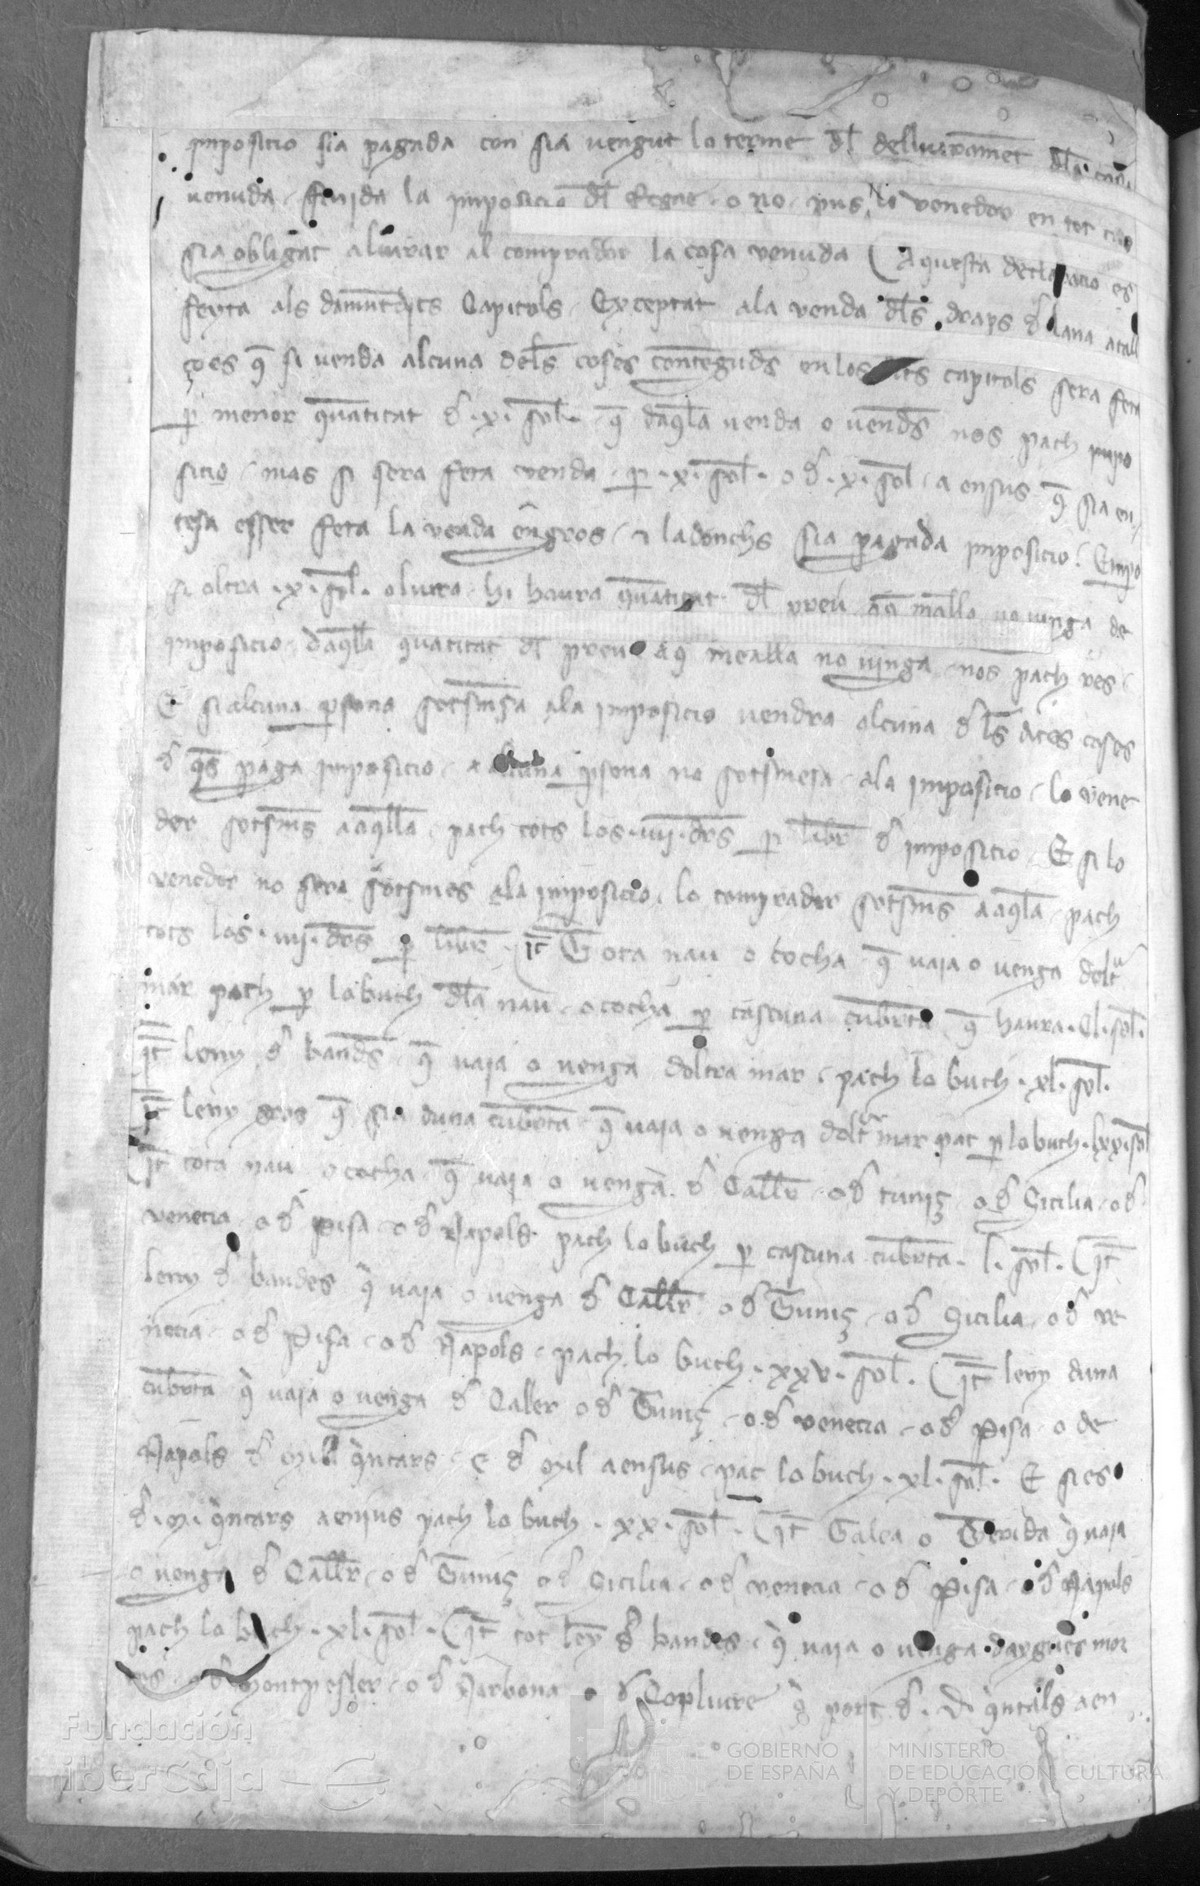 imposicio sia pagada con sia vengut lo terme dl deliurament dla cosa
venuda, fenida la imposicio dl Regne, o no, pus lo venedor en tot cas
sia obligat aliurar al comprador la cosa venuda ( Aquesta declaracio es
feyta als damuntdits Capitols, Exceptat ala venda dls draps d lana atall
çoes q si venda alcuna dels coses contegudes en los dits capitols sera feta
p menor quantitat d .x. sol. q daqlla venda o vendes nos pach inpo
sicio, mas si sera feta venda, p .x. sol. o d .x. sol, a ensus q sia en
tesa esser feta la venda engros, e ladonchs sia pagada imposicio, Empo
si oltra .x. sol. o liura, hi haura quantitat dl preu aq malla no vinga de
imposicio, daqlla quatitat dl preu aq mealla no vinga, nos pach res,
E si alcuna psona sotsmesa ala imposicio vendra alcuna d ls dites coses
d qs paga imposicio, a alcuna psona no sotsmesa, ala imposicio, lo vene
dor sotsmes aaqlla, pach tots los .iiij. drs p libr d imposicio, E si lo
venedor no sera sotsmes ala imposicio, lo comprador sotsmes aaqlla, pach
tots los .iiij. drs p libr. ( It Tota nau o cocha q vaia o venga doltra
mar pach p lo buch dla nau, o cocha p cascuna cuberta q haura .CL. sol.
It leny d bandes q vaia o venga doltra mar, pach lo buch .xl. sol.
It leny gros q sia duna cuberta q vaia o venga doltra mar pac p lo buch .Lxx. sol
( It tota nau o cocha q vaia o venga d Caller, o d tuniz, o d Sicilia, o d
venecia, o d Pisa, o d Napols pach lo buch p cascuna cuberta. L. sol. ( It
leny d bandes q vaia o venga d Caller o d Tuniz, o d Sicilia, o d ve
necia, o d Pisa, o d Napols, pach lo buch .xxv. sol. ( It leny duna
cuberta q vaia o venga d Caller o d Tuniz, o d venecia, o d Pisa, o de
Napols d mil qntars, e d mil aensus, pac lo buch .xl. sol. E si es
d .M. qntars aenjus pach lo buch .xx. sol. ( It Galea o Terida q vaia
o venga d Caller, o d Tuniz o d Sicilia, o d venecia, o d Pisa, o d Napols
pach lo buch .xl. sol. ( It tot leny d bandes, q vaia o venga daygues mor
tes, o d Montpesler, o d Narbona o d Copliure q port d .D. qntals aen
Fundación
iberCaja
GOBIERNO
DE ESPAÑA
MINISTERIO
DE EDUCACIÓN, CULTURA
Y DEPORTE